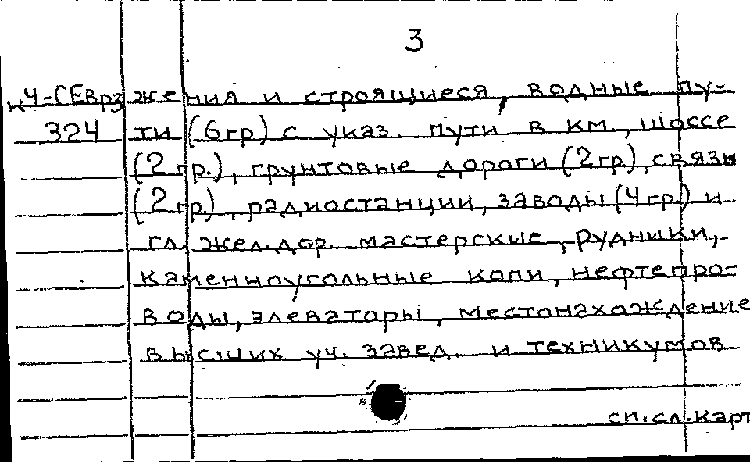 3
К 4-СЕвр3 жения и строящиеся, водные пу-
324 ти (6гр) с указ. пути в км., шоссе
(2 гр.), грунтовые дороги (2гр), связь
(2 гр.), радиостанции, заводы (4 гр.) и
гл. жел. дор. мастерские, рудники,
каменноугольные копи, нефтепро-
воды, элеваторы, местонахождение
высших уч. завед. и техникумов
сп. сл. карт